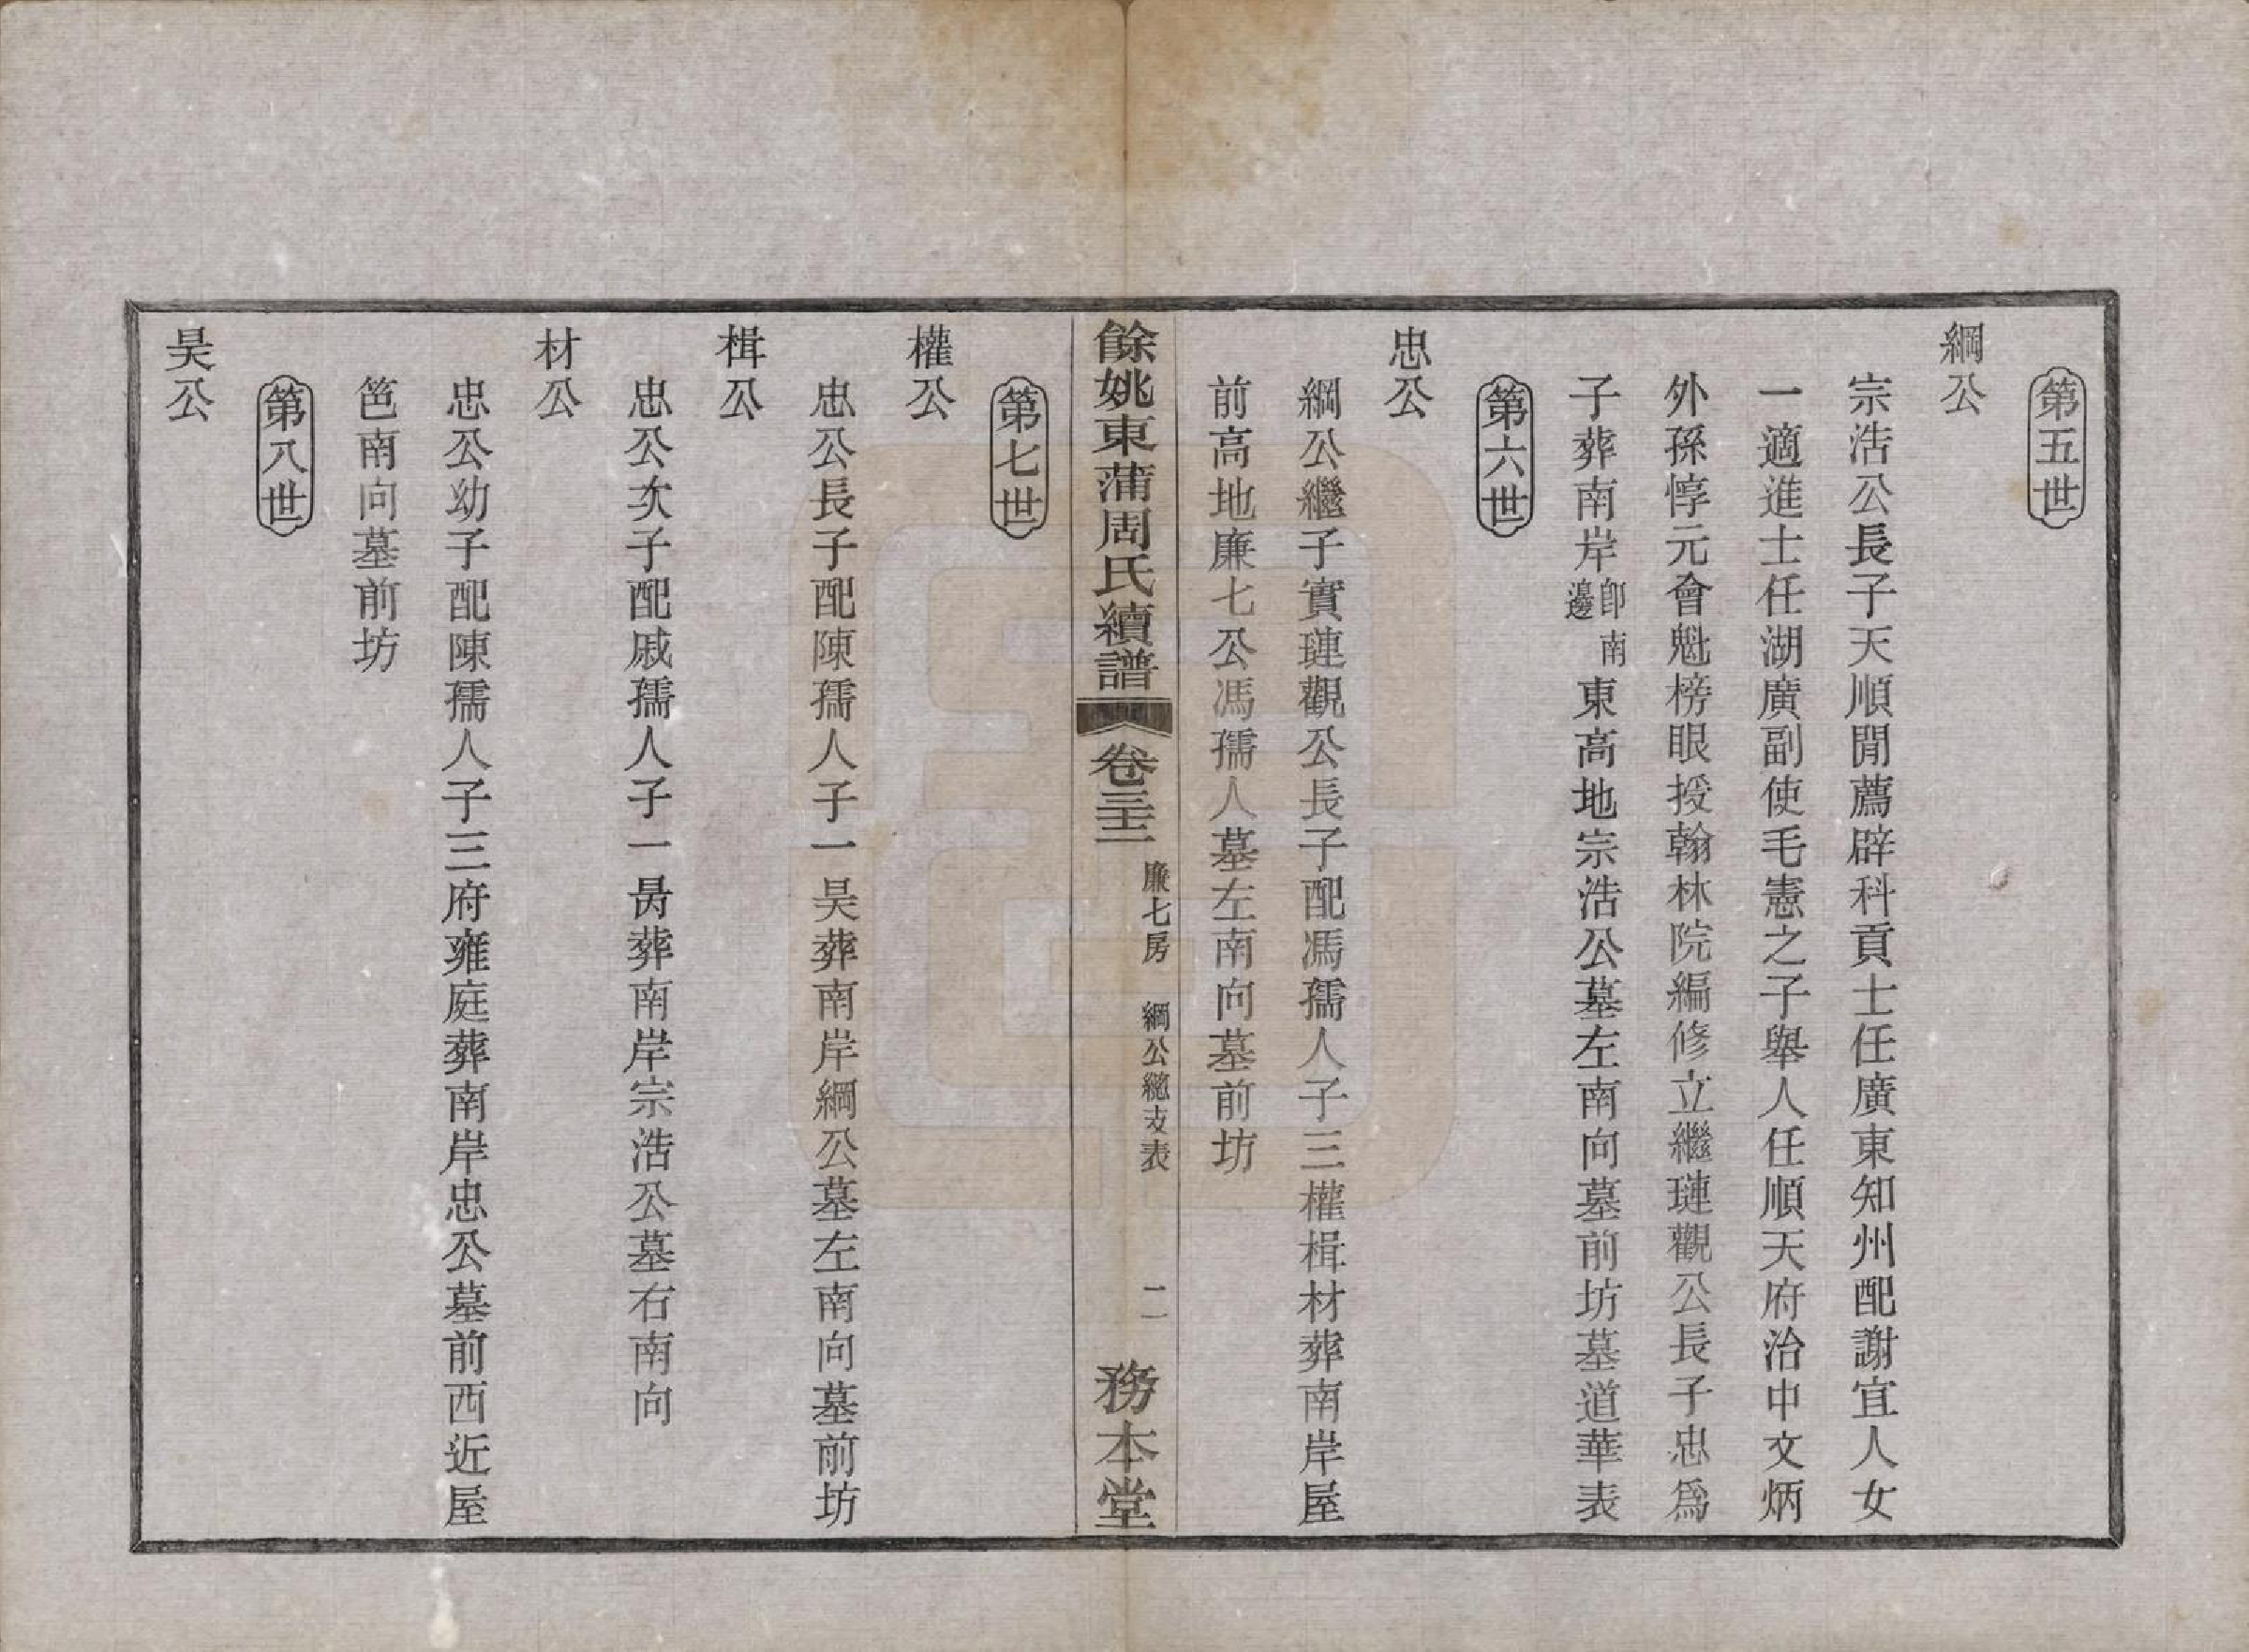 第五世
綱公
宗浩公長子天順閒薦辟科貢士任廣東知州配謝宜人女
一適進士任湖廣副使毛憲之子舉人任順天府治中文炳
外孫惇元會魁榜眼授翰林院編修立繼璉觀公長子忠爲
子葬南岸卽南邊東高地宗浩公墓左南向墓前坊墓道華表
第六世
忠公
綱公繼子實璉觀公長子配馮孺人子三權楫材葬南岸屋
前高地廉七公馮孺人墓左南向墓前坊
餘姚東蒲周氏續譜 卷三十二 廉七房 綱公總支表 二 務本堂
第七世
權公
忠公長子配陳孺人子一昊葬南岸綱公墓左南向墓前坊
楫公
忠公次子配戚孺人子一昺葬南岸宗浩公墓右南向
材公
忠公幼子配陳孺人子三府雍庭葬南岸忠公墓前西近屋
笆南向墓前坊
第八世
昊公